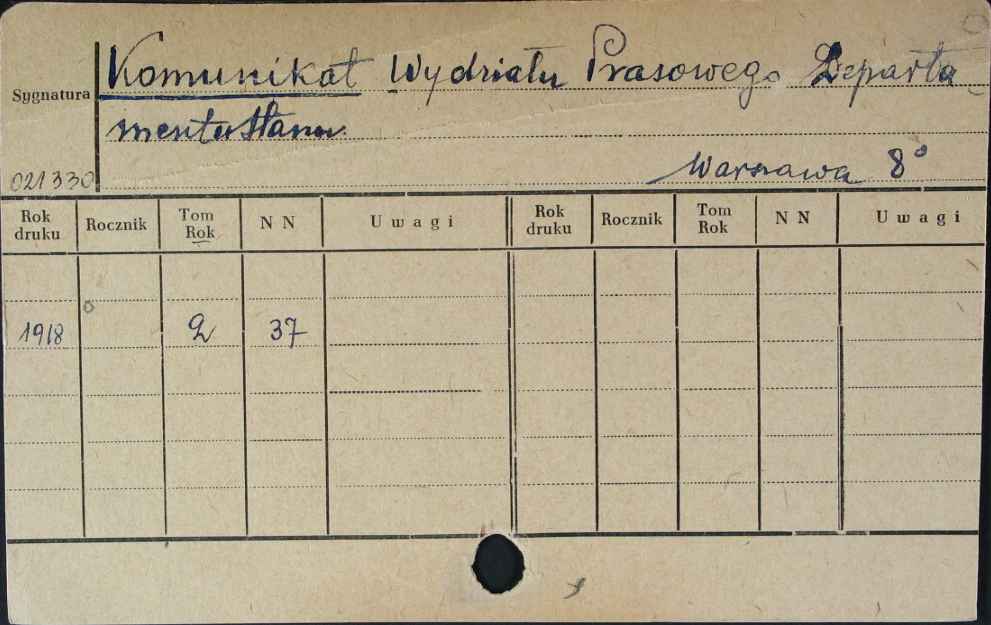 Komunikat Wydziału Prasowego Departa
Sygnatura
mentu Stanu.
Warszawa 8°
021330
Rok druku Rocznik Tom Rok N N Uwagi Rok druku Rocznik Tom Rok N N Uwagi
1918 2 37